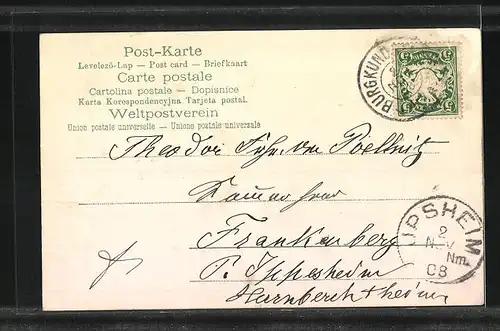 Post-Karte
Levelező-Lap — Post card — Briefkaart
Carte postale
Cartolina postale — Dopisnice
Karta Korespondencyjna Tarjeta postal.
Weltpostverein
Union postale universelle — Unione postale universale
BURGKUND
5 5
Theodor Frhr. von Poellnitz
Frankenberg
P. Ippesheim
IPSHEIM
2
NOV
Nm.
08